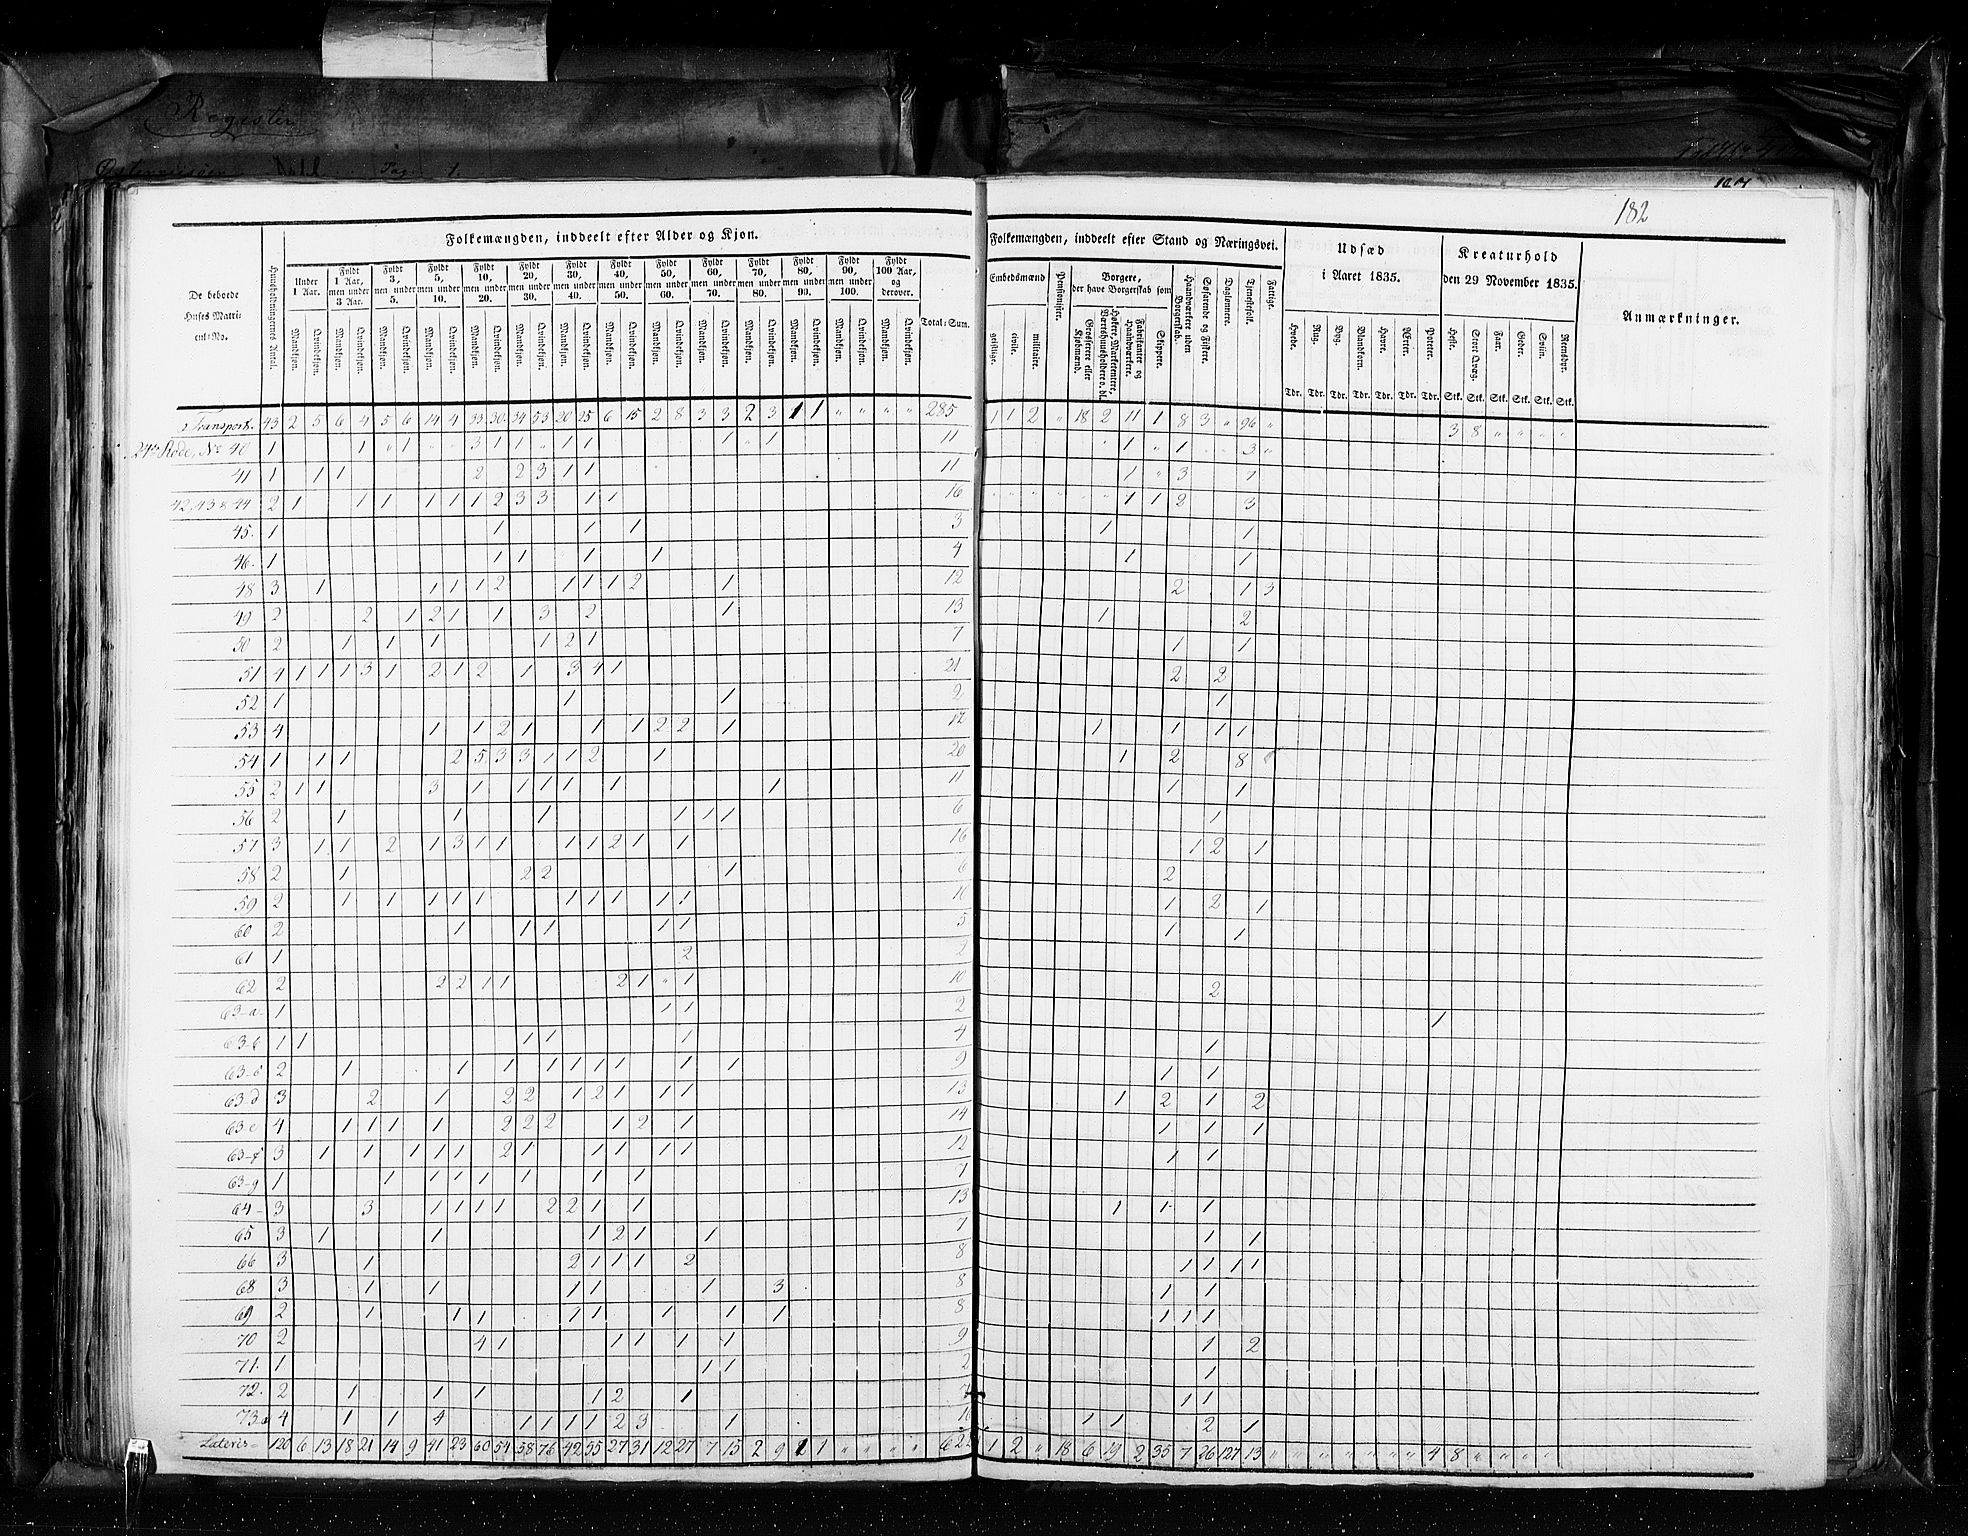 Register
Pag. 1.
182
Folkemængden, inddeelt efter Alder og Kjøn.
De beboede Huses Matricul-No.
Huusholdningernes Antal.
Under 1 Aar.
Fyldt 1 Aar, men under 3 Aar.
Fyldt 3, men under 5.
Fyldt 5, men under 10.
Fyldt 10, men under 20.
Fyldt 20, men under 30.
Fyldt 30, men under 40.
Fyldt 40, men under 50.
Fyldt 50, men under 60.
Fyldt 60, men under 70.
Fyldt 70, men under 80.
Fyldt 80, men under 90.
Fyldt 90, men under 100.
Fyldt 100 Aar, og derover.
Mandkjøn. Qvindekjøn.
Total-Sum.
Folkemængden, inddeelt efter Stand og Næringsvei.
Embedsmænd
geistlige. civile. militaire.
Pensionister.
Borgere, der have Borgerskab som
Grosserer eller Kjøbmænd.
Høkere, Marketentere, Værtshuusholdere o. dl.
Fabrikanter og Haandværkere.
Skippere.
Haandværkere uden Borgerskab.
Søfarende og Fiskere.
Daglønnere.
Tjenestefolk.
Fattige.
Udsæd i Aaret 1835.
Hvede. Rug. Byg. Blandkorn. Havre. Erter. Poteter.
Tdr. Tdr. Tdr. Tdr. Tdr. Tdr. Tdr.
Kreaturhold den 29 November 1835.
Heste. Stort Qvæg. Faar. Geder. Sviin. Reensdyr.
Stk. Stk. Stk. Stk. Stk. Stk.
Anmærkninger.
Transport. 43 2 5 6 4 5 6 14 4 33 30 34 53 20 25 6 15 2 8 3 3 2 3 1 1 " " " " 285 1 1 2 " 18 2 11 1 8 3 " 96 " 3 8 " " " "
24de Rode, No 40 1 1 " 1 3 1 1 " 1 1 1 " 1 11 1 " 1 3 "
41 1 1 1 2 2 3 1 1 11 1 " 3 7
42, 43 & 44 2 1 1 1 1 1 1 2 3 3 1 1 16 1 1 2 3
45. 1 1 1 1 3 1 1
46. 1 1 1 1 1 4 1 1
48 3 1 1 1 1 2 1 1 1 2 1 12 2 1 3
49 2 2 1 2 1 1 3 2 1 13 1 2
50 2 1 1 1 1 2 1 7 1 1
51 4 1 1 1 3 1 2 1 2 1 3 4 1 21 2 2
52 1 1 1 2 1
53 4 1 1 2 1 1 1 2 2 1 12 1 1 1 1
54 1 1 1 2 5 3 3 1 1 2 1 20 1 2 8
55 2 1 1 3 1 1 1 1 1 1 11 1 1
56 2 1 1 1 1 1 1 6 1
57 3 1 1 2 1 3 1 1 1 1 2 1 1 16 1 2 1
58 2 1 2 2 1 6 2
59 2 1 1 1 1 1 1 1 1 1 1 10 1 2 1
60 2 1 1 1 1 1 5 1 1
61 1 2 2
62 2 2 2 1 1 2 1 " 1 10 2
63-a- 1 1 1 2 1
63-b 1 1 1 1 1 4 1
63-c 2 1 1 1 1 1 1 1 1 1 9 1 1
63-d 3 2 1 2 2 1 2 1 1 1 13 1 2 1 2
63-e 4 1 1 1 1 2 2 2 1 2 1 14 1 1 1
63-f 3 1 1 1 1 1 2 1 1 1 1 1 12 1 1
63-g 1 1 1 1 1 1 1 1 7
64- 3 3 1 1 1 1 2 2 1 1 13 1 1 1
65 3 1 1 1 2 1 1 7 1 1
66 3 1 2 1 1 1 2 8 1 1 1 1
68 3 1 1 1 1 1 3 8 1 1
69 2 1 1 1 1 1 1 1 1 8 1 1 1
70 2 4 1 1 1 1 1 9 1 2
71. 1 1 1 2 1
72. 2 1 1 1 1 2 1 7 1 1
73.a 4 1 1 4 1 1 1 1 2 3 1 16 1 1 2 1
Lateris- 120 6 13 18 21 14 9 41 23 60 54 58 76 42 55 27 31 12 27 7 15 2 9 1 1 " " " " 1 2 " 18 6 19 2 35 7 26 127 13 " " " " " " " 4 8 " " " "